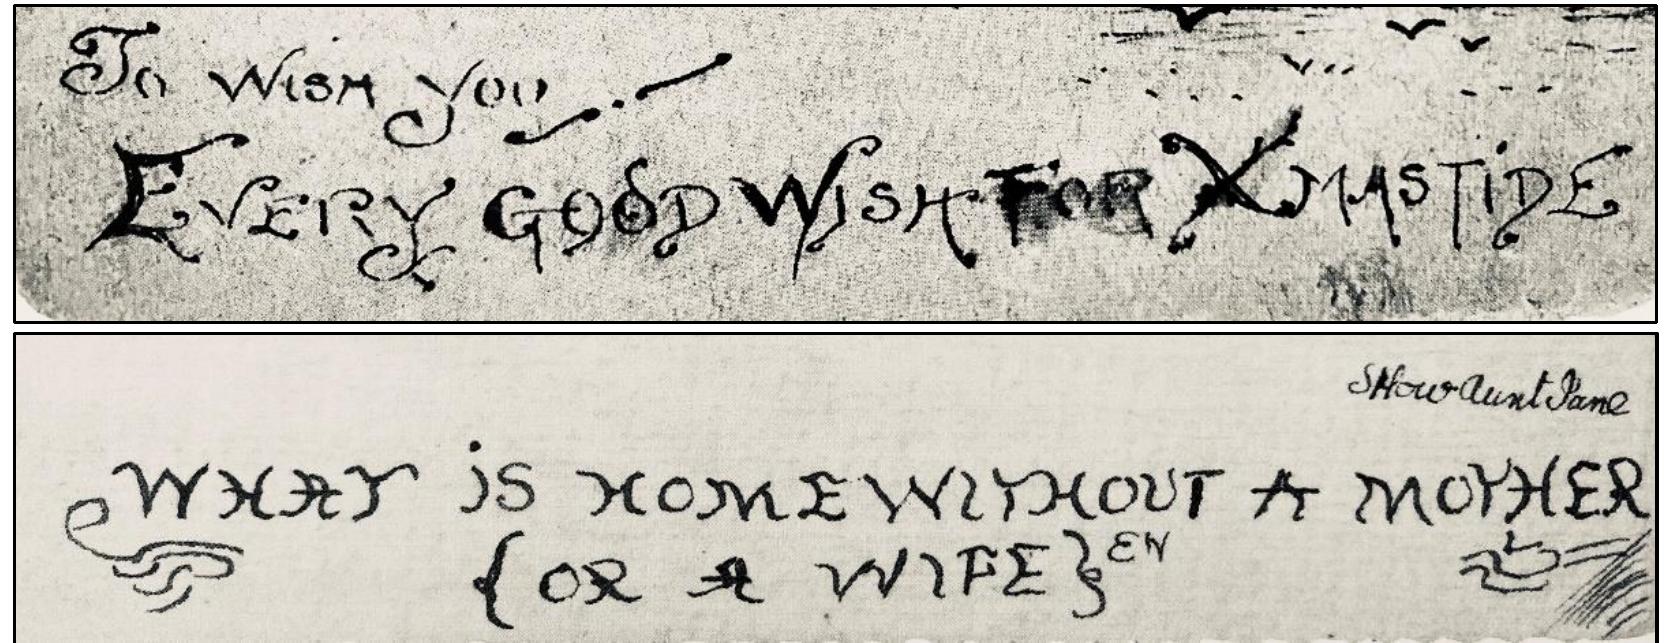 To Wish you
EVERY GOOD WISH FOR XMASTIDE
SHow Aunt Jane
WHAT iS HOME WITHOUT A MOTHER
{OR A WIFE} EN